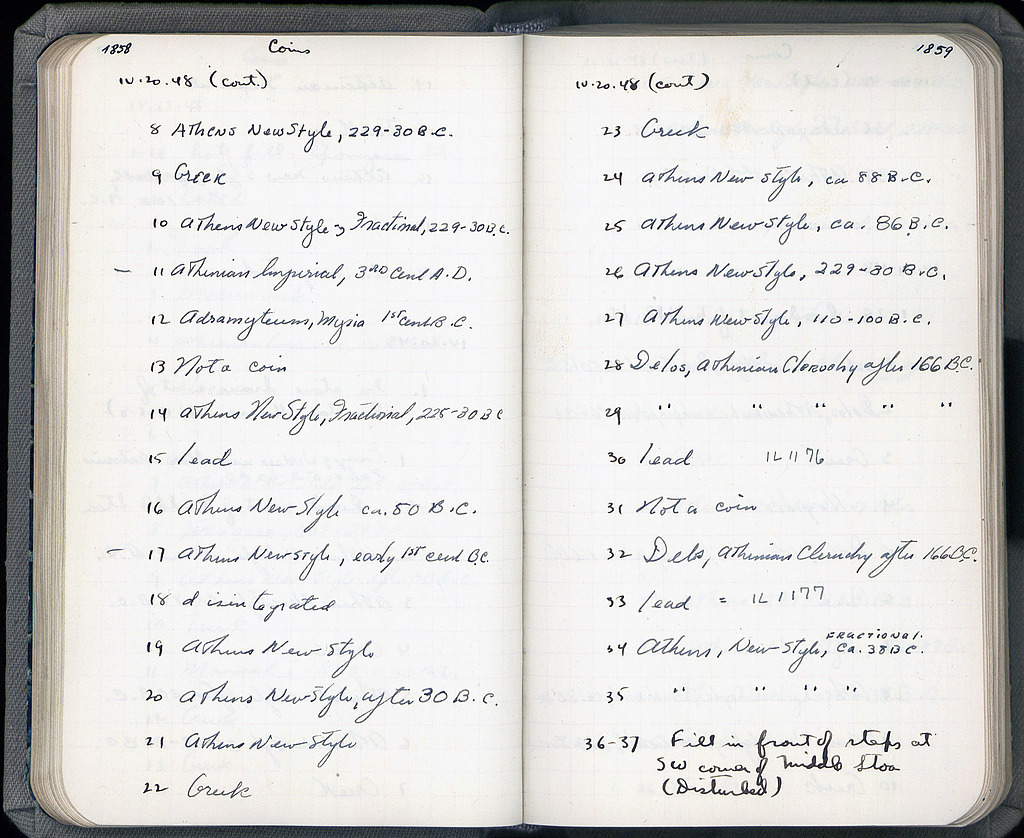 1858 Coins
IV.20.48 (cont.)
8 Athens New Style, 229-30 B.C.
9 Greek
10 Athens New Style, Fractional, 229-30 B.C.
— 11 Athenian Imperial, 3RD Cent A.D.
12 Adramyteum, Mysia 1st cent B.C.
13 Not a coin
14 Athens New Style, Fractional, 225-30 BC
15 lead
16 Athens New Style ca. 50 B.C.
— 17 Athens New Style, early 1st cent B.C.
18 disintegrated
19 Athens New Style
20 Athens New Style, after 30 B.C.
21 Athens New Style
22 Greek
1859
IV.20.48 (cont)
23 Greek
24 Athens New Style, ca 88 B.C.
25 Athens New Style, ca. 86 B.C.
26 Athens New Style, 229-30 B.C.
27 Athens New Style, 110-100 B.C.
28 Delos, Athenian Cleruchy after 166 B.C.
29 " " " " "
30 lead IL 1176
31 Not a coin
32 Delos, Athenian Cleruchy after 166 B.C.
33 lead = IL 1177
34 Athens, New Style, FRACTIONAL. ca. 38 B.C.
35 " " " "
36-37 Fill in front of steps at
SW corner of Middle Stoa
(Disturbed)